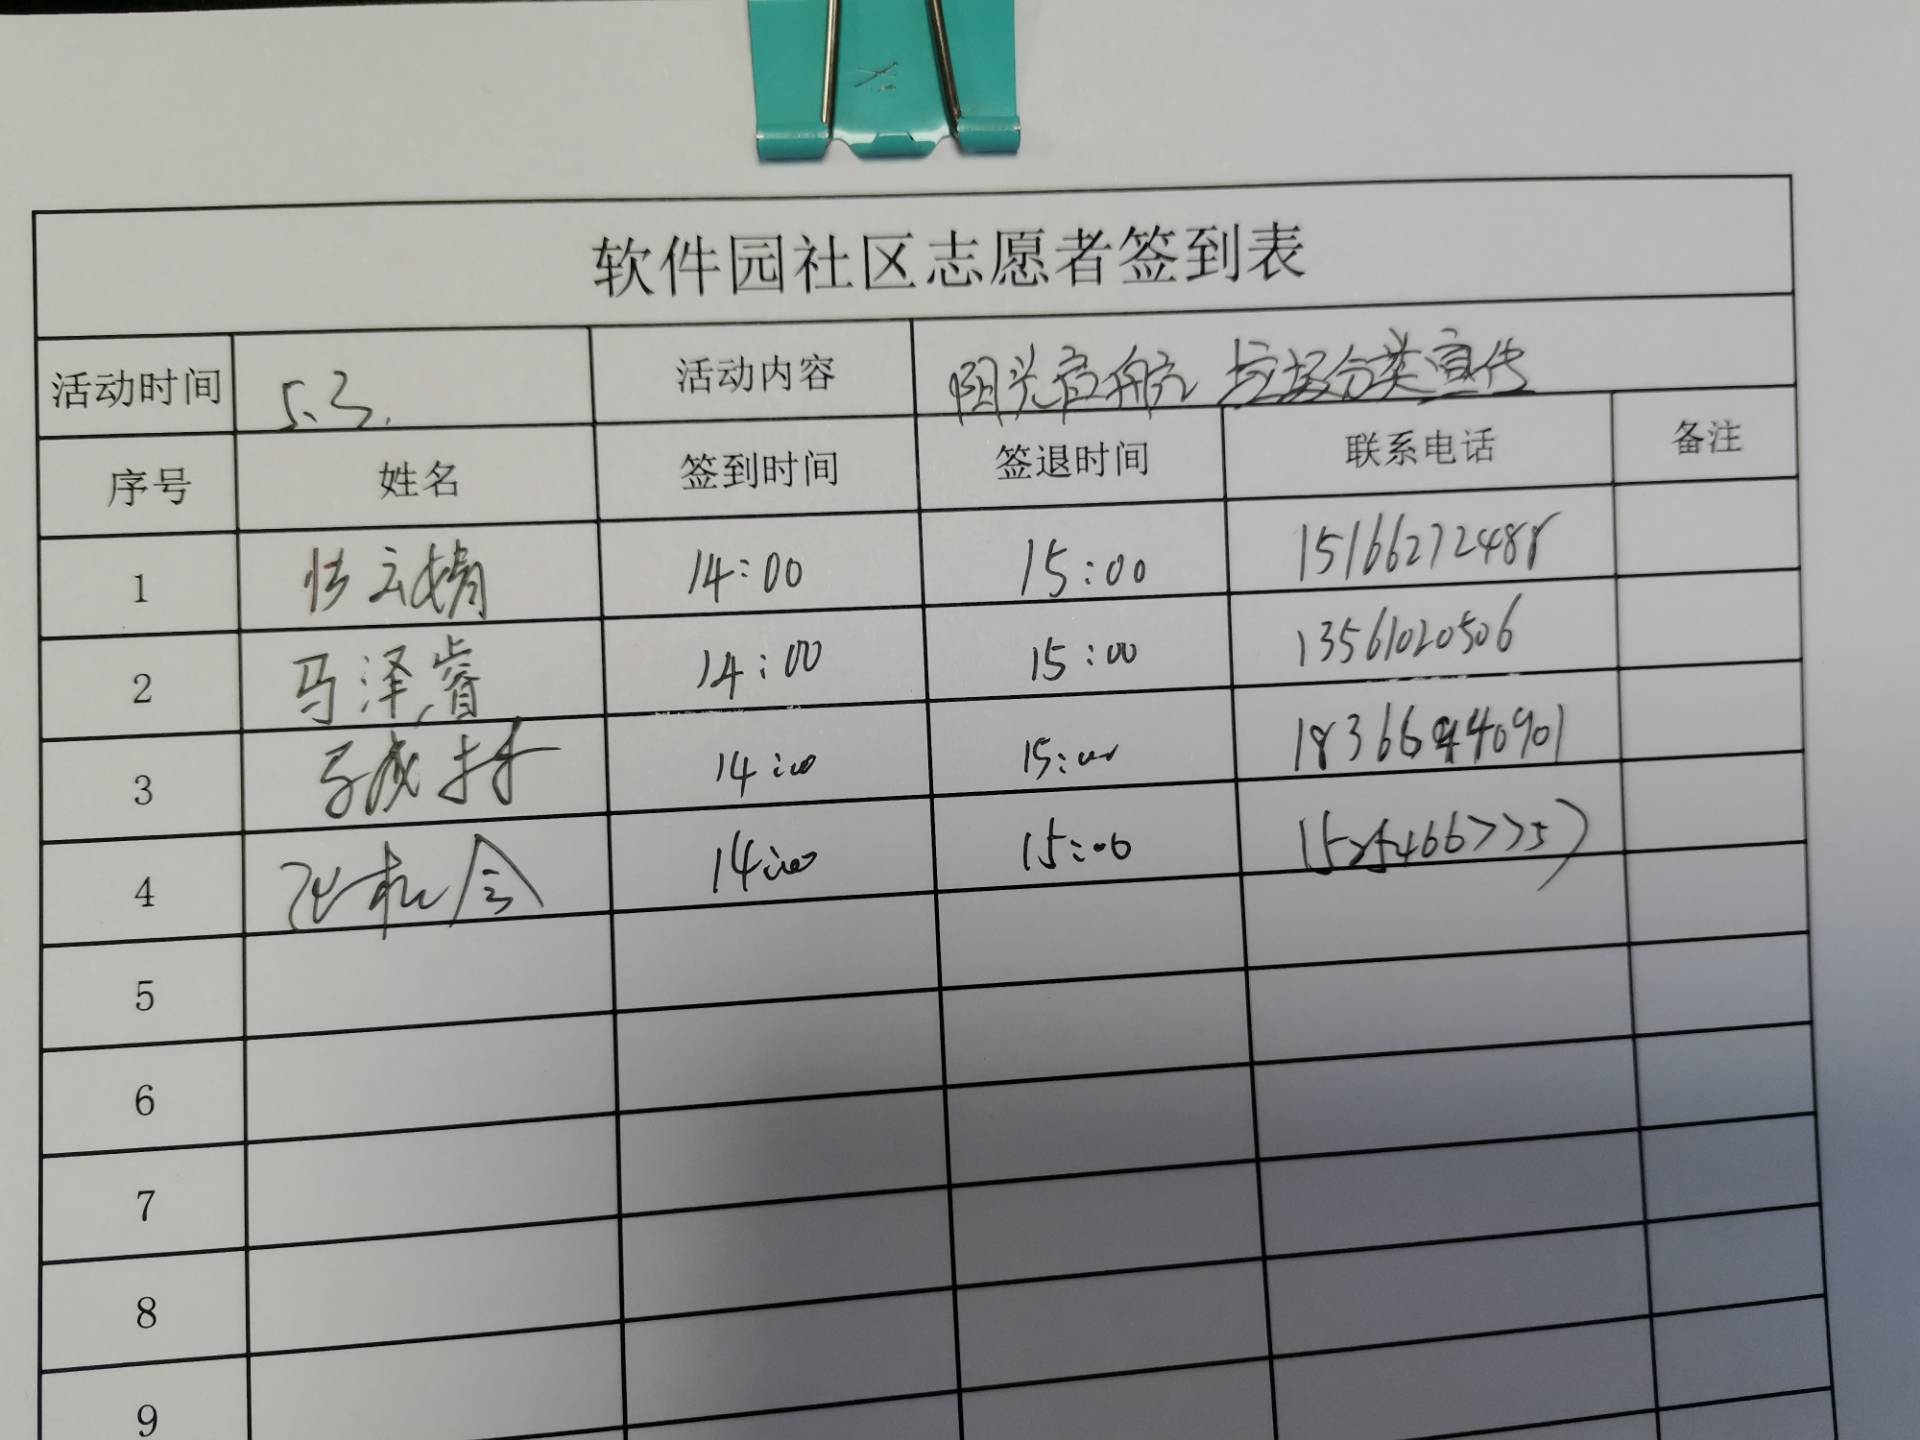 软件园社区志愿者签到表
活动时间 5.3. 活动内容 阳光启航 垃圾分类宣传
序号 姓名 签到时间 签退时间 联系电话 备注
1 云婧 14:00 15:00 15166272488
2 马泽睿 14:00 15:00 13561020506
3 14:00 15:00
4 14:00 15:00
5
6
7
8
9